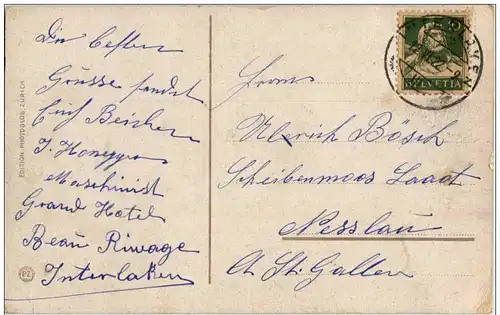 Die besten
Grüsse sendet
J. Honegger
Maschinist
Grand Hotel
Beau Riwage
Interlaken
EDITION PHOTOGLOB, ZÜRICH
PZ
HELVETIA
Herrn
Ulerich Bösch
Scheibenmoos Laaat
Nesslau
Ct St. Gallen